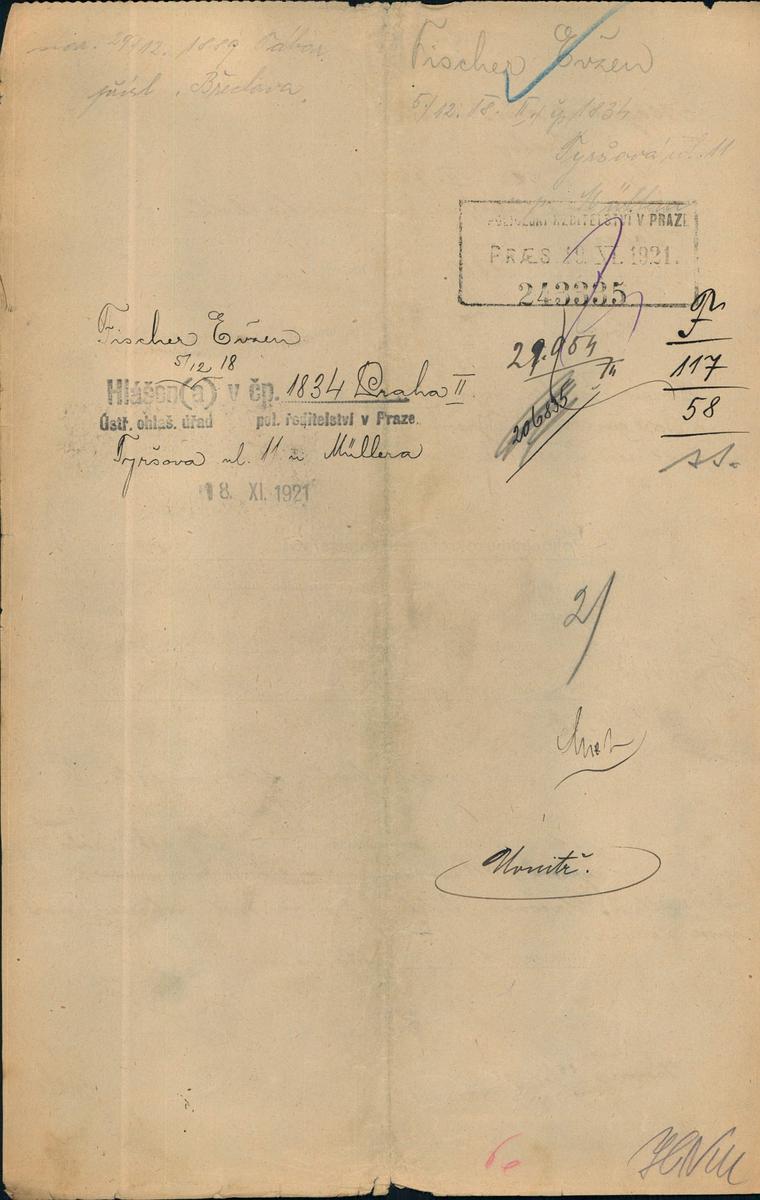 nar. 29/12. 1889 Tábor
přísl. Břeclava
Fischer Evžen
5/12. 18. II. čp 1834
Tyršova ul. 11
u Müllera
POLICEJNÍ ŘEDITELSTVÍ V PRAZE
PRÆS 19. XI. 1921.
243335
Fischer Evžen
5/12 18
Hlášen(a) v čp. 1834 Praha II.
Ústř. ohlaš. úřad pol. ředitelství v Praze.
Tyršova ul. 11 u Müllera
18. XI. 1921
29.954
206835
F
117
58
2/
Vnitř.